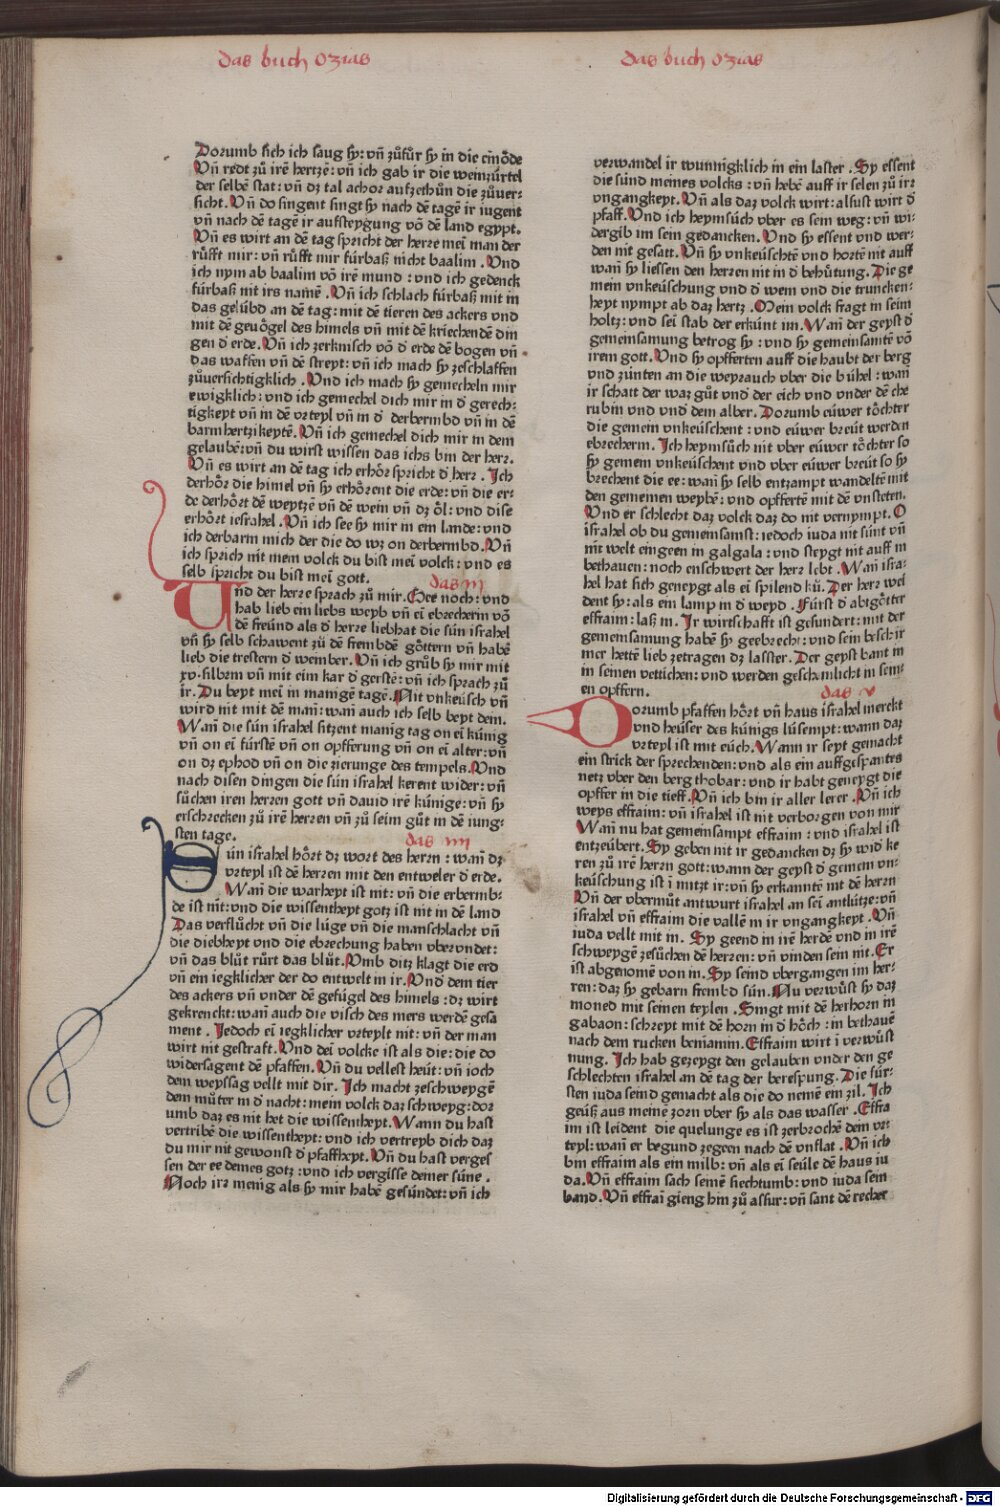 das buch ozias
das buch ozias
Dorumb sich ich saug sy: vñ zůfůr sy in die einöde
Vñ redt zů irē hertzē: vñ ich gab ir die weinzürtel
der selbē stat: vñ dz tal achor aufzethůn die zůuer-
sicht. Vñ do singent singt sy nach dē tagē ir iugent
vñ nach dē tagē ir aufsteygung vō dē land egypt.
Vñ es wirt an dē tag spricht der herre mei man der
růfft mir: vñ růfft mir fúrbaß nicht baalim. Vnd
ich nym ab baalim vō irē mund: vnd ich gedenck
fúrbaß nit irs namē. Vñ ich schlach fúrbaß mit in
das gelúbd an dē tag: mit dē tieren des ackers vnd
mit dē geuögel des himels vñ mit dē kriechendē din
gen đ erde. Vñ ich zerknisch vō đ erde dē bogen vñ
das waffen vñ dē streyt: vñ ich mach sy zeschlaffen
zůuersichtigklich. Vnd ich mach sy gemecheln mir
ewigklich: vnd ich gemechel dich mir in đ gerech-
tigkeyt vñ in dē vrteyl vñ in đ derbermbd vñ in dē
barmhertzikeytē. Vñ ich gemechel dich mir in dem
gelaubē: vñ du wirst wissen das ichs bin der herr.
Vñ es wirt an dē tag ich erhör spricht đ herr. Ich
derhör die himel vñ sy erhörent die erde: vñ die er-
de derhört dē weytzē vñ dē wein vñ dz öl: vnd dise
erhört iesrahel. Vñ ich see sy mir in ein lande: vnd
ich derbarm mich der die do wz on derbermbd. Vñ
ich sprich nit mein volck du bist mei volck: vnd es
selb spricht du bist mei gott.
das iii
Vñd der herre sprach zů mir. Gee noch: vnd
hab lieb ein liebs weyb vñ ei ebrecherin vō
dē freúnd als đ herre liebhat die sún israhel
vñ sy selb schawent zů dē frembdē göttern vñ habē
lieb die trestern đ weinber. Vñ ich grůb sy mir mit
xv. silbrin vñ mit eim kar đ gerstē: vñ ich sprach zů
ir. Du beyt mei in manigē tagē. Nit vnkeúsch vñ
wird nit mit dē mañ: wañ auch ich selb beyt dein.
Wañ die sún israhel sitzent manig tag on ei kúnig
vñ on ei fúrstē vñ on opfferung vñ on ei alter: vñ
on dz ephod vñ on die zierunge des tempels. Vnd
nach disen dingen die sún israhel kerent wider: vñ
sůchen iren herren gott vñ dauid irē kúnige: vñ sy
erschrecken zů irē herren vñ zů seim gůt in dē iung-
sten tage.
das iiii
Sún israhel hört dz wort des herrn: wañ dz
vrteyl ist dē herren mit den entweler đ erde.
Wañ die warheyt ist nit: vñ die erbermb-
de ist nit: vnd die wissentheyt gotz ist nit in dē land
Das verflůcht vñ die lúge vñ die manschlacht vñ
die diebheyt vnd die ebrechung haben vberundet:
vñ das blůt růrt das blůt. Vmb ditz klagt die erd
vñ ein iegklicher der do entwelt in ir. Vnd dem tier
des ackers vñ vnder dē gefúgel des himels: dz wirt
gekrenckt: wañ auch die visch des mers werdē gesa
ment. Jedoch ei iegklicher vrteylt nit: vñ der man
wirt nit gestraft. Vnd dei volcke ist als die: die do
widersagent dē pfaffen. Vñ du vellest heút: vñ ioch
dem weyssag vellt mit dir. Ich macht zeschweygē
dein můter in đ nacht: mein volck daz schweyg: dor
umb daz es nit het die wissentheyt. Wann du hast
vertribē die wissentheyt: vnd ich vertreyb dich daz
du mir nit gewonst đ pfaffheyt. Vñ du hast verges
sen der ee deines gotz: vnd ich vergisse deiner súne.
Noch irz menig als sy mir habē gesúndet: vñ ich
verwandel ir wunnigklich in ein laster. Sy essent
die súnd meines volcks: vñ hebē auff ir selen zů irz
vngangkeyt. Vñ als daz volck wirt: alsust wirt đ
pfaff. Vnd ich heymsůch vber es sein weg: vñ wi-
dergib im sein gedancken. Vnd sy essent vnd wer-
den nit gesatt. Vñ sy vnkeúschtē vnd hortē nit auff
wañ sy liessen den herren nit in đ behůtung. Die ge
mein vnkeúschung vnd đ wein vnd die truncken-
heyt nympt ab daz hertz. Mein volck fragt in seim
holtz: vnd sei stab der erkúnt im. Wañ der geyst đ
gemeinsamung betrog sy: vnd sy gemeinsamtē vō
irem gott. Vnd sy opfferten auff die haubt der berg
vnd zúnten an die weyrauch vber die búhel: wañ
ir schatt der waz gůt vnd der eich vnd vnder dē che
rubin vnd vnd dem alber. Dorumb eúwer töchter
die gemein vnkeúschent: vnd eúwer breút werden
ebrecherin. Ich heymsůch nit vber eúwer töchter so
sy gemein vnkeúschent vnd vber eúwer breút so sy
brechent die ee: wañ sy selb entzampt wandeltē mit
den gemeinen weybē: vnd opffertē mit dē vnsteten.
Vnd er schlecht daz volck daz do nit vernympt. O
israhel ob du gemeinsamst: iedoch iuda nit súnt vñ
nit welt eingeen in galgala: vnd steygt nit auff in
bethauen: noch enschwert der herr lebt. Wañ isra-
hel hat sich geneygt als ei spilend kú. Der herr wei
dent sy: als ein lamp in đ weyd. Fúrst đ abtgötter
effraim: laß in. Ir wirtschafft ist gesúndert: mit der
gemeinsamung habē sy geebrecht: vnd sein beschir
mer hettē lieb zetragen dz laster. Der geyst bant in
in seinen vettichen: vnd werden geschemlicht in sein-
en opffern.
das v
Dorumb pfaffen hört vñ haus israhel merckt
vnd heúser des kúnigs lúsempt: wann daz
vrteyl ist mit eúch. Wann ir seyt gemacht
ein strick der sprechenden: vnd als ein auffgespantes
netz vber den berg thobar: vnd ir habt geneygt die
opffer in die tieff. Vñ ich bin ir aller lerer. Vñ ich
weys effraim: vñ israhel ist nit verborgen von mir
Wañ nu hat gemeinsampt effraim: vnd israhel ist
entzeúbert. Sy geben nit ir gedancken dz sy wid ke
ren zů irē herrn gott: wann der geyst đ gemein vn-
keúschung ist i mitzt ir: vñ sy erkanntē nit dē herrn
Vñ der vbermůt antwurt israhel an sei antlútze: vñ
israhel vñ effraim die vallē in ir vngangkeyt. Vñ
iuda vellt mit in. Sy geend in irē herdē vnd in irē
schweygē zesůchen dē herren: vñ vinden sein nit. Er
ist abgenomē von in. Sy seind vbergangen im her-
ren: daz sy gebarn frembd sún. Nu verwúst sy daz
moned mit seinen teylen. Singt mit dē herhorn in
gabaon: schreyt mit dē horn in đ höch: in bethauē
nach dem rucken beniamin. Effraim wirt i verwúst
nung. Ich hab gezeygt den gelauben vnder den ge
schlechten israhel an dē tag der berespung. Die fúr-
sten iuda seind gemacht als die do nemē ein zil. Ich
geúß aus meinē zorn vber sy als das wasser. Effra
im ist leident die quelunge es ist zerbrochē dem vr-
teyl: wañ er begund zegeen nach dē vnflat. Vñ ich
bin effraim als ein milb: vñ als ei seúle dē haus iu
da. Vñ effraim sach seinē siechtumb: vnd iuda sein
band. Vñ effrai gieng hin zů assur: vñ sant dē recher
Digitalisierung gefördert durch die Deutsche Forschungsgemeinschaft - DFG